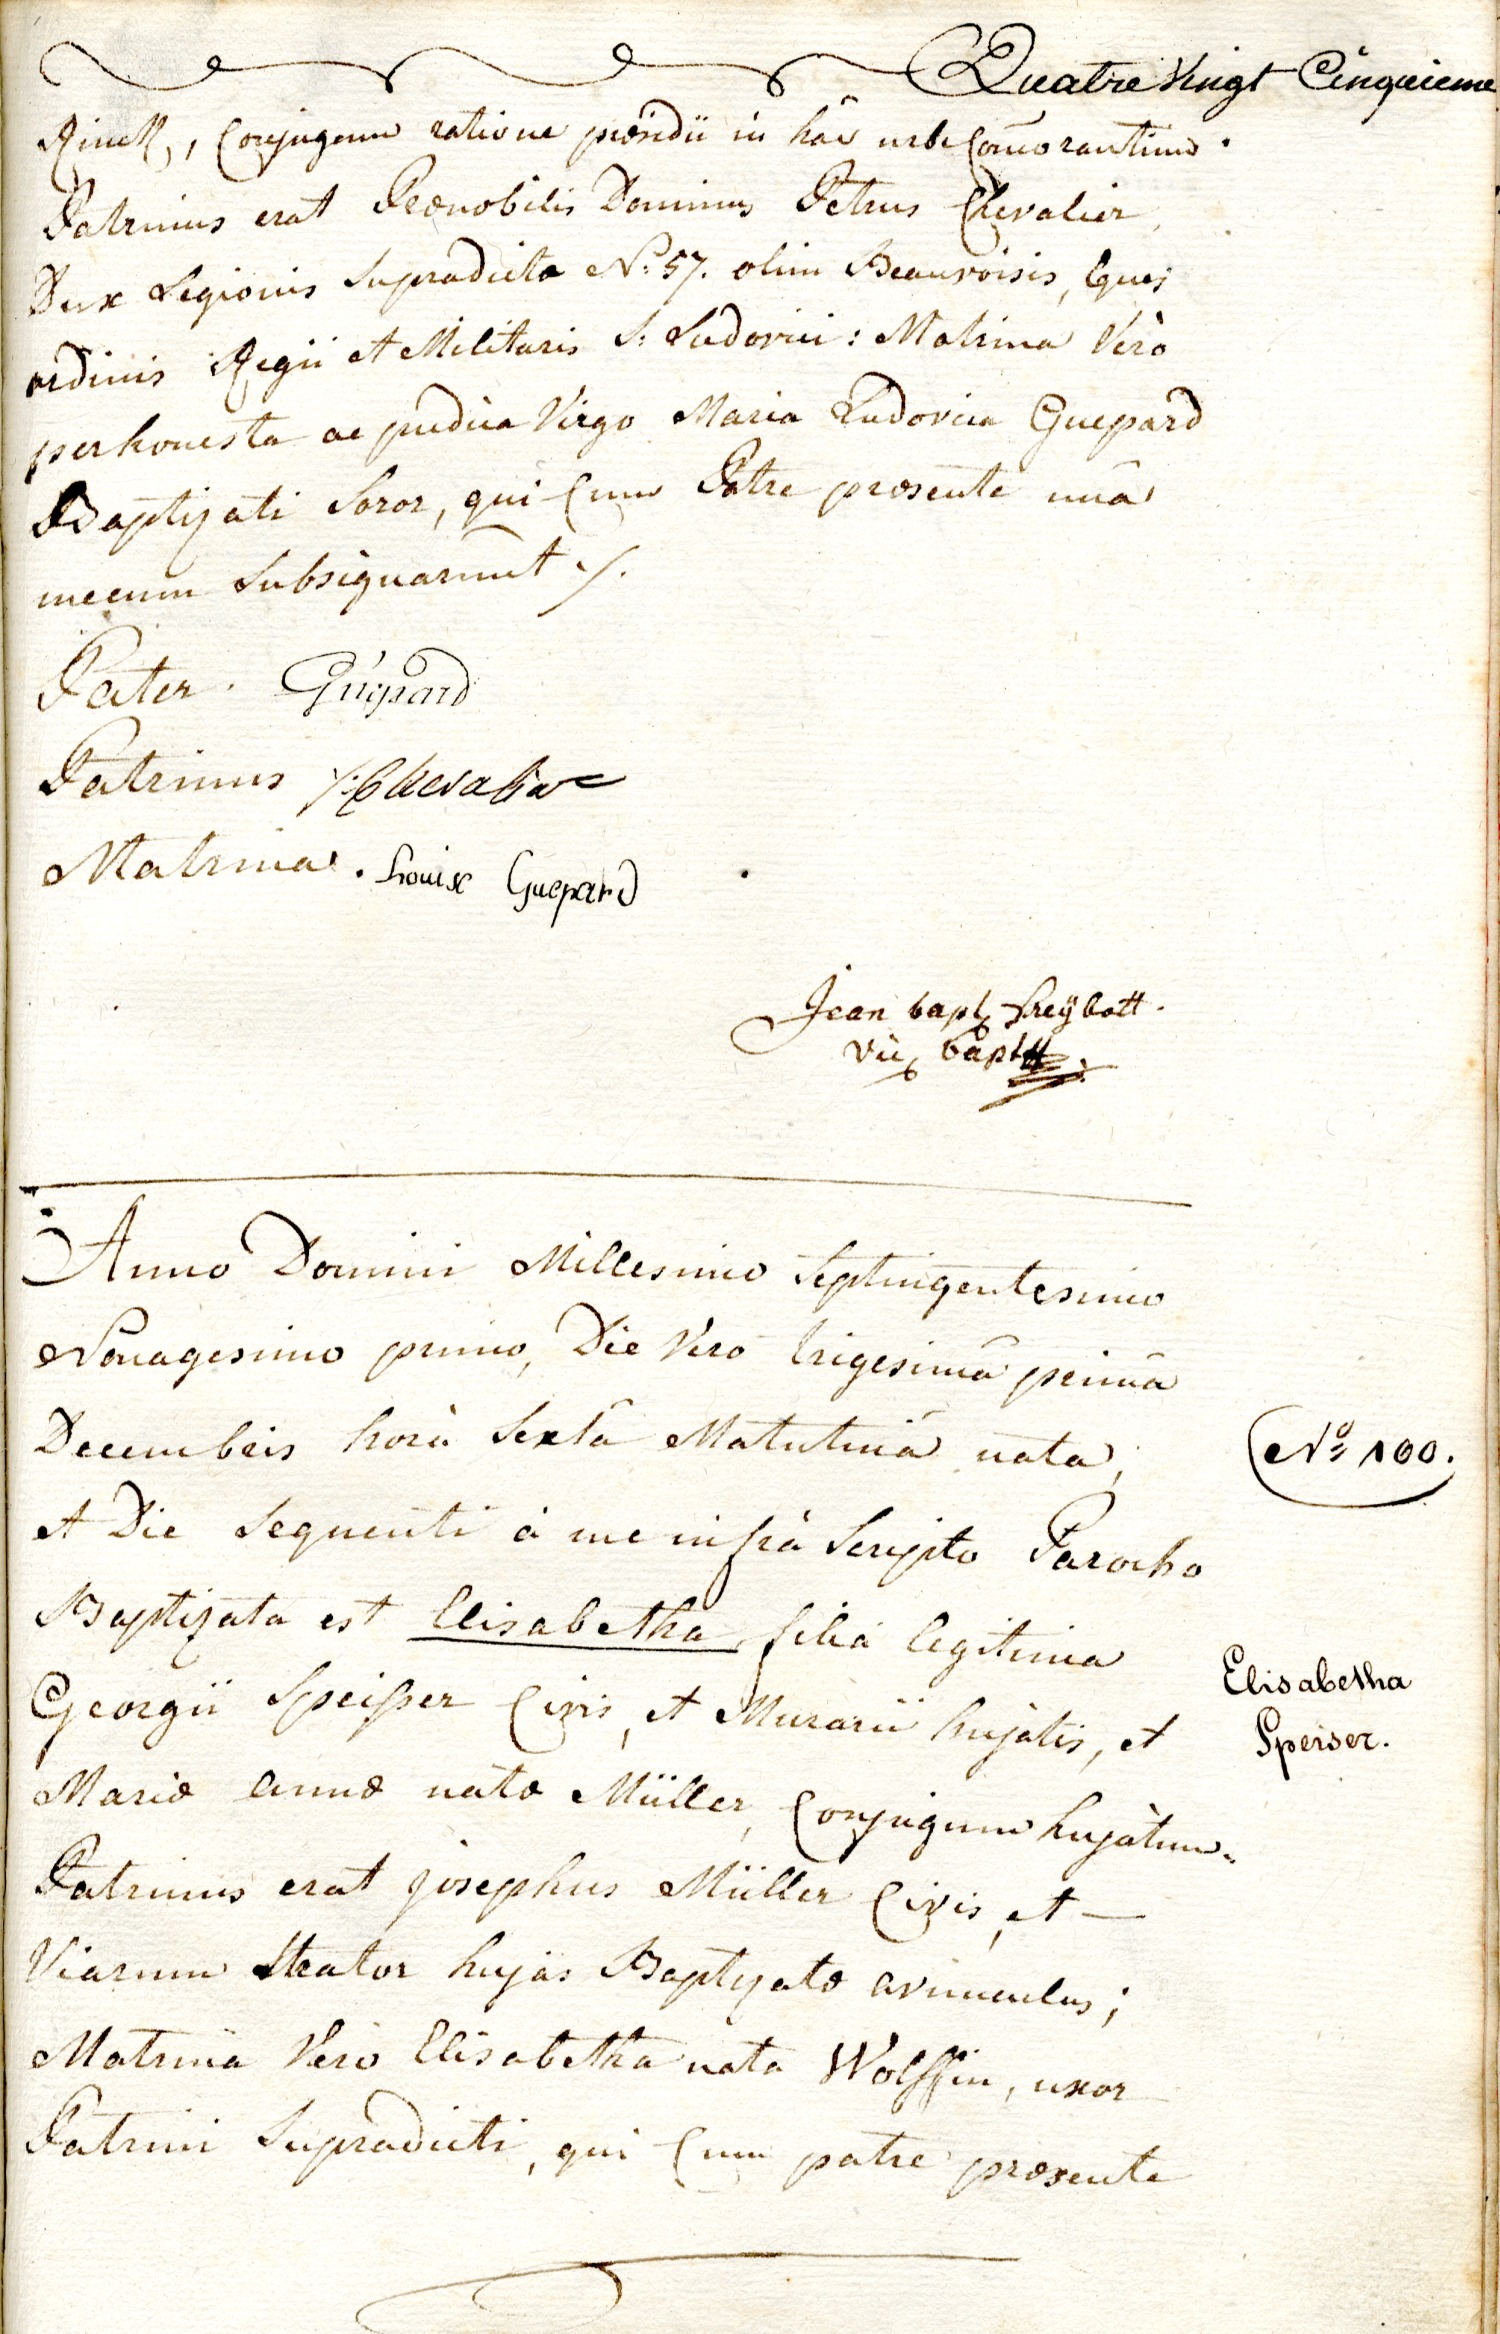 Quatre Vingt Cinquieme
Rinck, Conjugum ratione præsidii in hâc urbe Com̃orantium.
Patrinus erat Prænobilis Dominus Petrus Chevalier,
Dux Legionis Supradictæ N.º 57. olim Beauvoisis, Eques
ordinis Regii et Militaris S: Ludovici: Matrina Verò
perhonesta ac pudica Virgo Maria Ludovica Guepard
Baptizati Soror, qui Cum Patre præsente unà
mecum Subsignarunt ./.
Pater. Guépard
Patrinus ./. Chevalier
Matrina. Louise Guepard
Jean bapt freÿbott.
vic bapt
Anno Domini Millesimo Septingentesimo
Nonagesimo primo, Die Verò trigesimâ primâ
Decembris horâ Sextâ Matutinâ nata,
et Die Sequenti à me infrà Scripto Parocho
Baptizata est Elisabetha filia legitima
Georgii Speisser Civis, et Murarii hujatis, et
Mariæ Annæ natæ Müller, Conjugum hujatum.
Patrinus erat josephus Müller Civis, et
Viarum Strator hujas Baptizatæ avunculus;
Matrina Verò Elisabetha nata Wolffin, uxor
Patrini Supradicti, qui Cum patre præsente
Nº 100.
Elisabetha
Speiser.